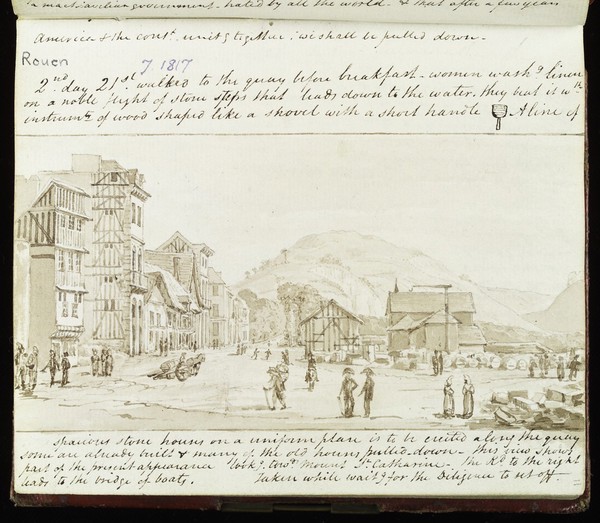 a machiavelian government - hated by all the world - & that after a few years
America & the cont.t unit.g together : we shall be pulled down -
Rouen
J 1817
2.nd day 21.st walked to the quay before breakfast - women wash.g linen
on a noble flight of stone steps that leads down to the water. they beat it w.th
instrum.ts of wood shaped like a shovel with a short handle A line of
spacious stone houses on a uniform plan is to be erected along the quay
some are already built & many of the old houses pulled down - this view shows
part of the present appearance look.g tow.ds Mount S.t Catharine - The R.d to the right
leads to the bridge of boats. Taken while wait.g for the Diligence to set off